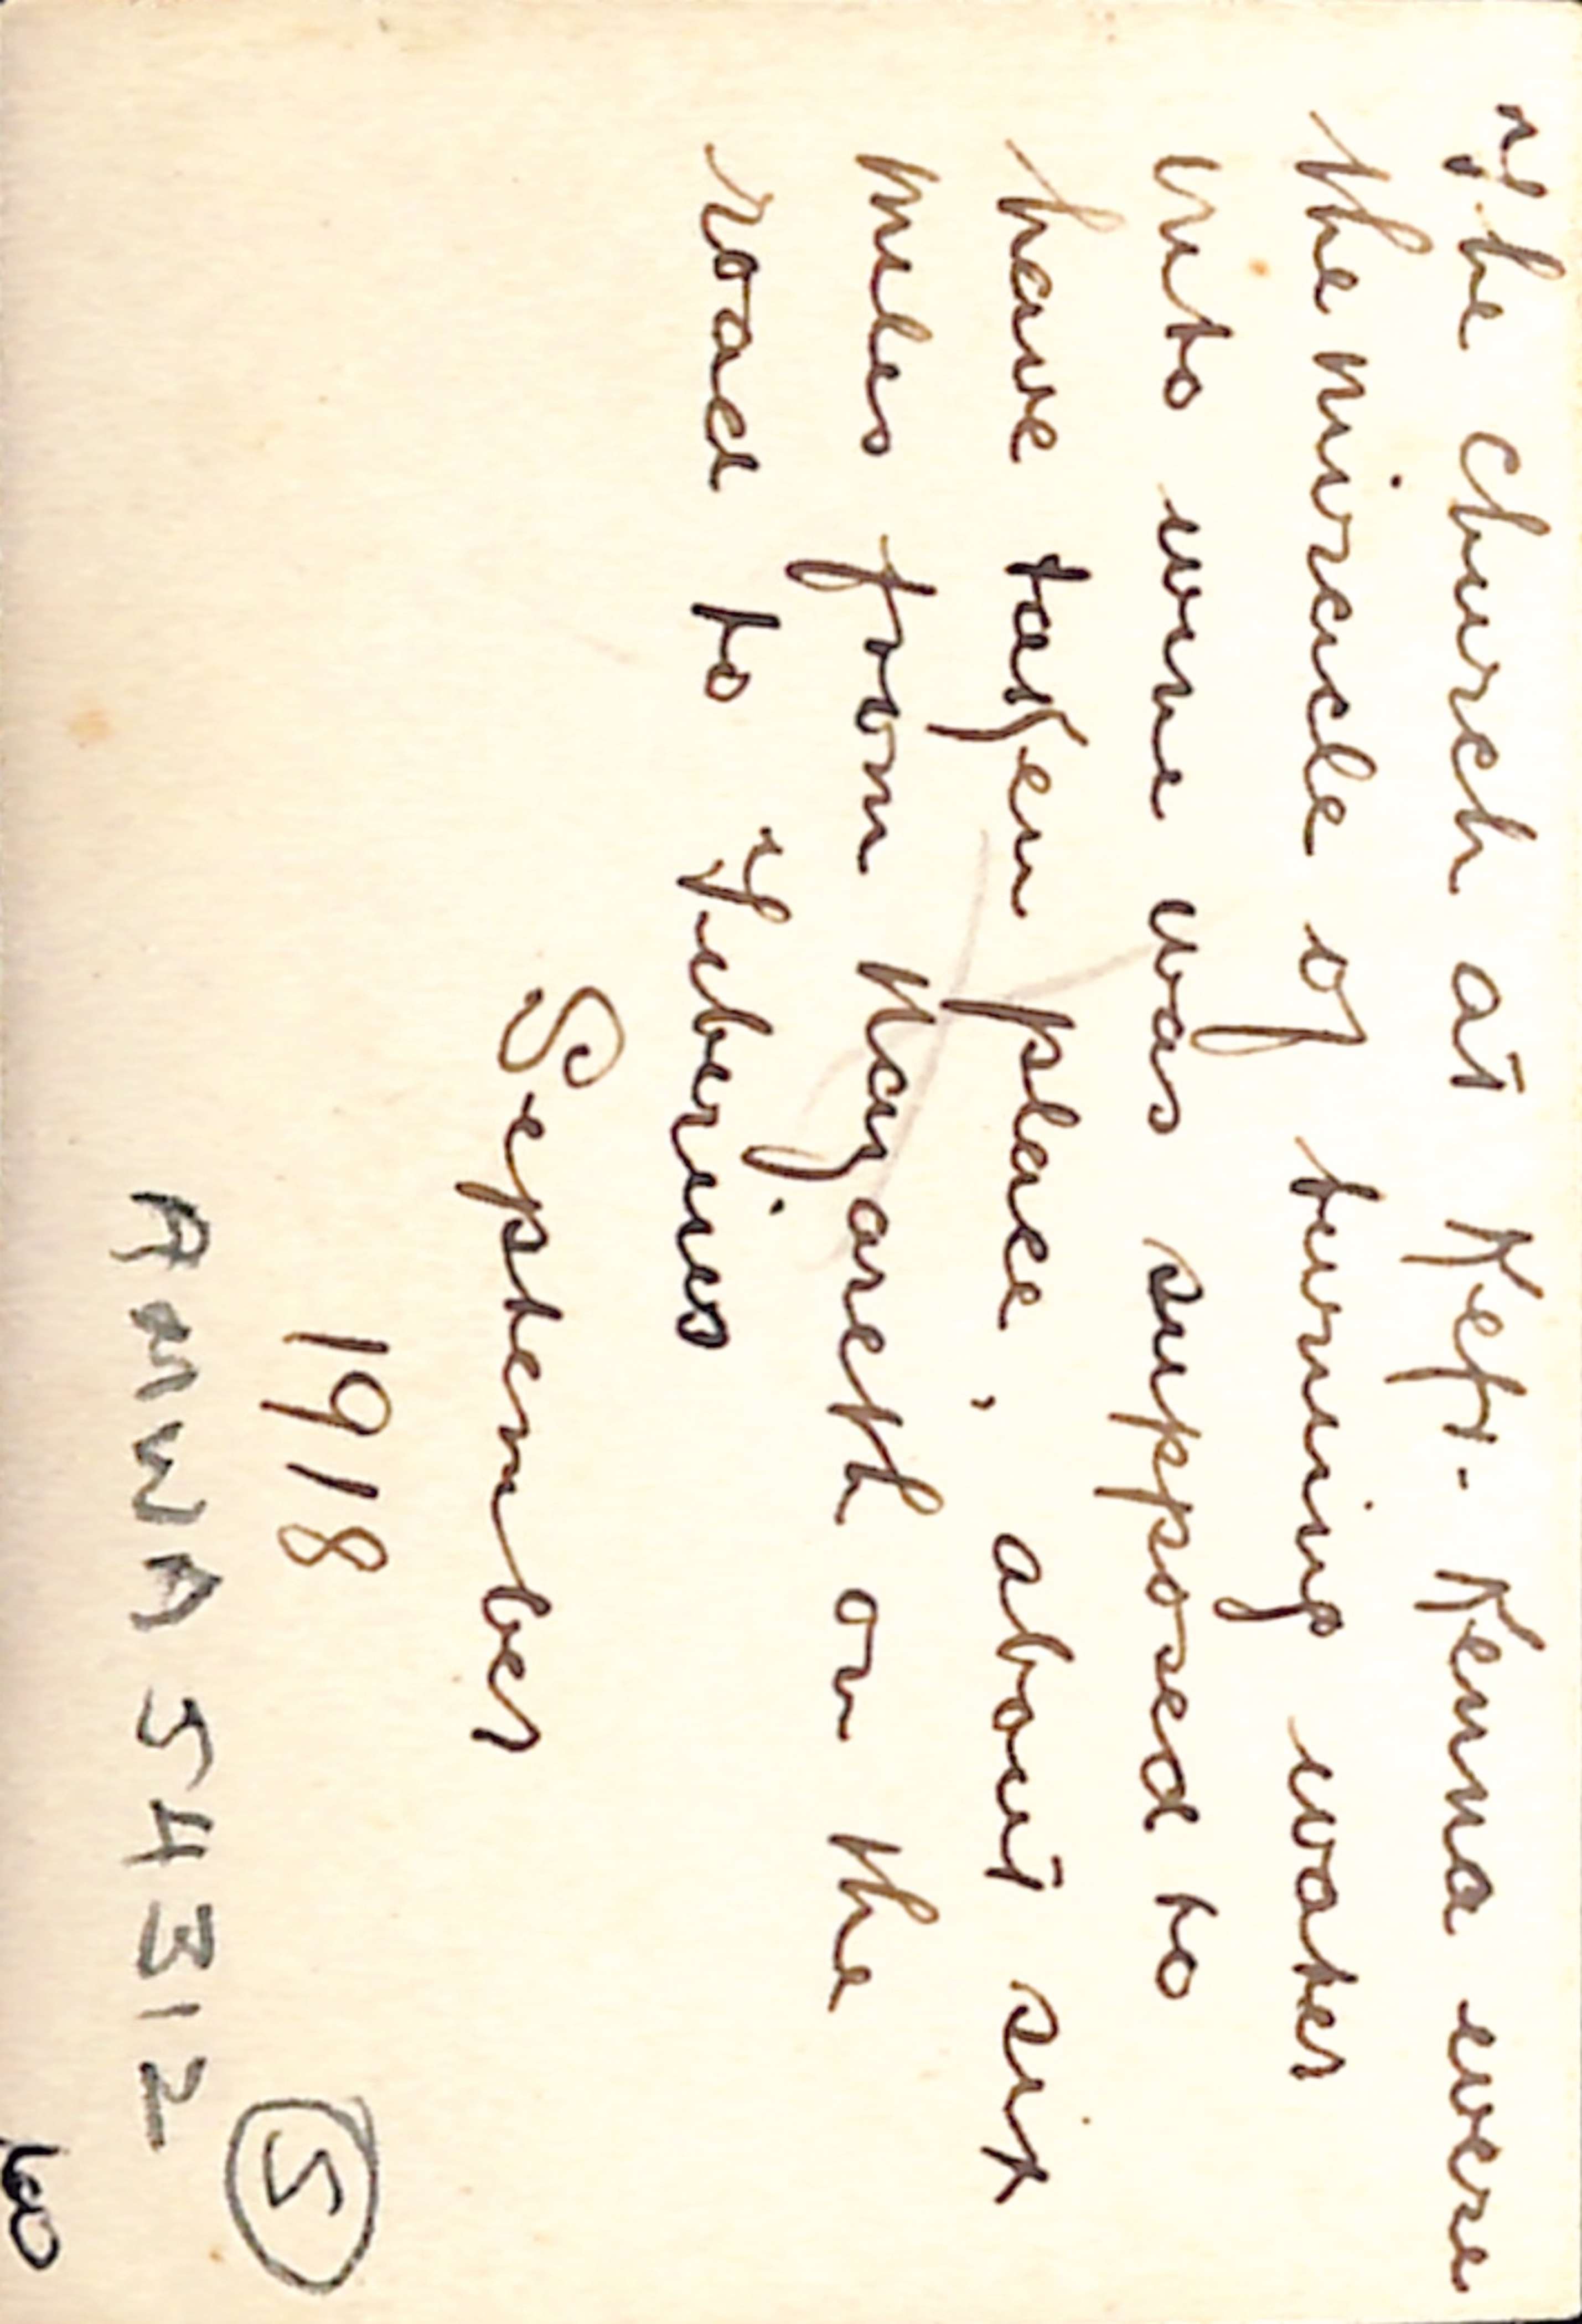 The church at Kefr-Kenna were
the miracle of turning water
into wine was supposed to
have taken place, about six
miles from Nazareth on the
road to Tiberius
September
1918
5
AMWA 54312